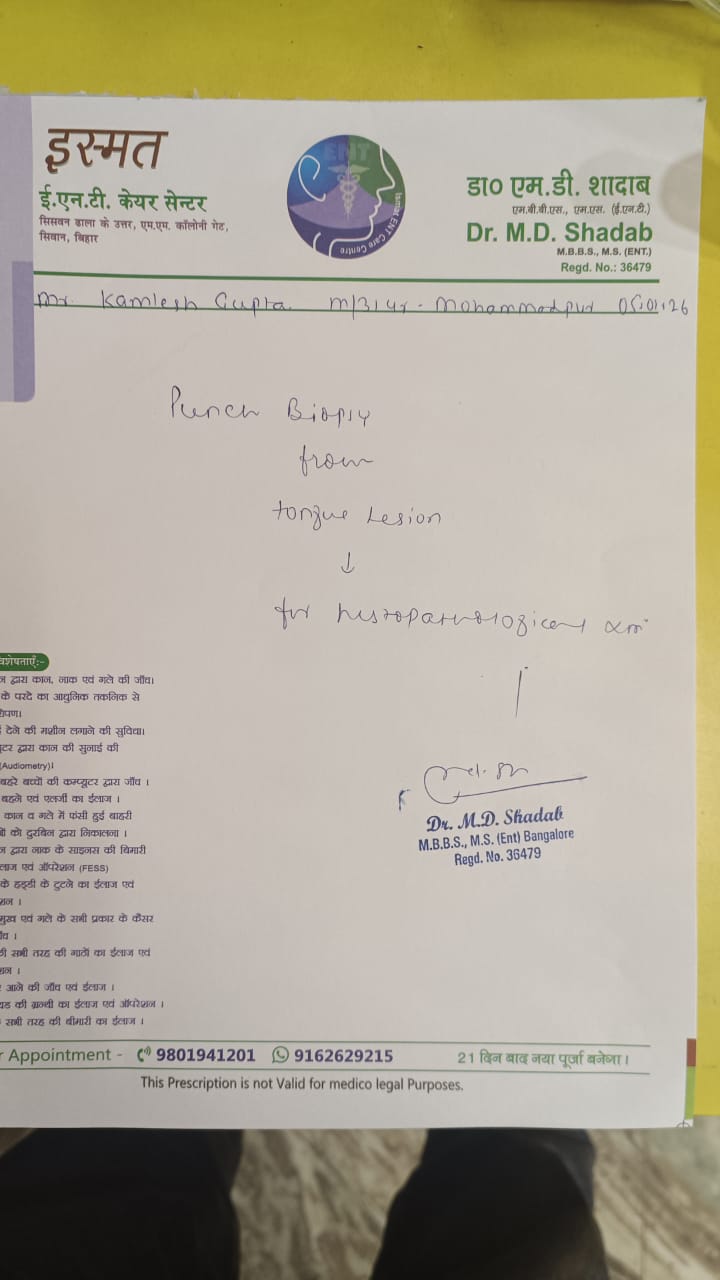 इस्मत
ई.एन.टी. केयर सेन्टर
सिसवन ढाला के उत्तर, एम.एम. कॉलोनी गेट,
सिवान, बिहार
ENT
Ismat ENT Care Centre
डा० एम.डी. शादाब
एम.बी.बी.एस., एम.एस. (ई.एन.टी.)
Dr. M.D. Shadab
M.B.B.S., M.S. (ENT.)
Regd. No.: 36479
Mr. Kamlesh Gupta M/31 yr - Mohammadpur 05.01.26
Punch Biopsy
from
tongue Lesion
↓
for histopathological
Dr. M.D. Shadab
M.B.B.S., M.S. (Ent) Bangalore
Regd. No. 36479
विशेषताएँ:-
न द्वारा कान, नाक एवं गले की जाँच।
के परदे का आधुनिक तकनिक से
देने की मशीन लगाने की सुविधा।
द्वारा कान की सुनाई की
(Audiometry)।
बहरे बच्चों की कम्प्यूटर द्वारा जाँच ।
बहने एवं एलर्जी का ईलाज ।
कान व गले में फंसी हुई बाहरी
को दुरबिन द्वारा निकालना ।
द्वारा नाक के साइनस की बिमारी
लाज एवं ऑपरेशन (FESS)
के हड्डी के टुटने का ईलाज एवं
मुख एवं गले के सभी प्रकार के कैंसर
की सभी तरह की गाठों का ईलाज एवं
आने की जाँच एवं ईलाज ।
की ग्रन्थी का ईलाज एवं ऑपरेशन ।
सभी तरह की बीमारी का ईलाज ।
Appointment - 9801941201 9162629215 21 दिन बाद नया पूर्जा बनेगा।
This Prescription is not Valid for medico legal Purposes.